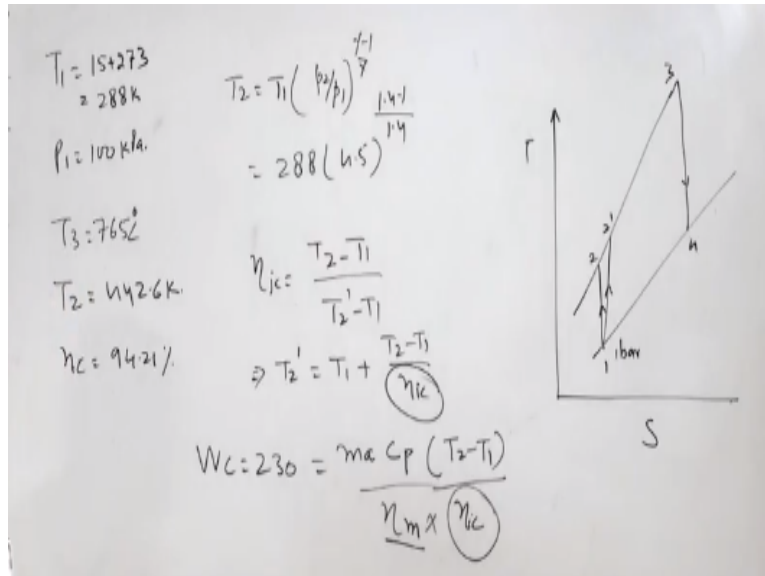 T₁ = 15+273
= 288K
P₁ = 100 kPa.
T₃ = 765°C
T₂ = 442.6K.
ηc = 94.21%.
T₂ = T₁ (P₂/P₁)^(γ-1/γ)
= 288 (4.5)^(1.4-1/1.4)
ηic = T₂-T₁ / T₂'-T₁
⇒ T₂' = T₁ + T₂-T₁ / ηic
Wc = 230 = ma Cp (T₂-T₁) / ηm x ηic
T
3
2'
2
4
1
1bar
S